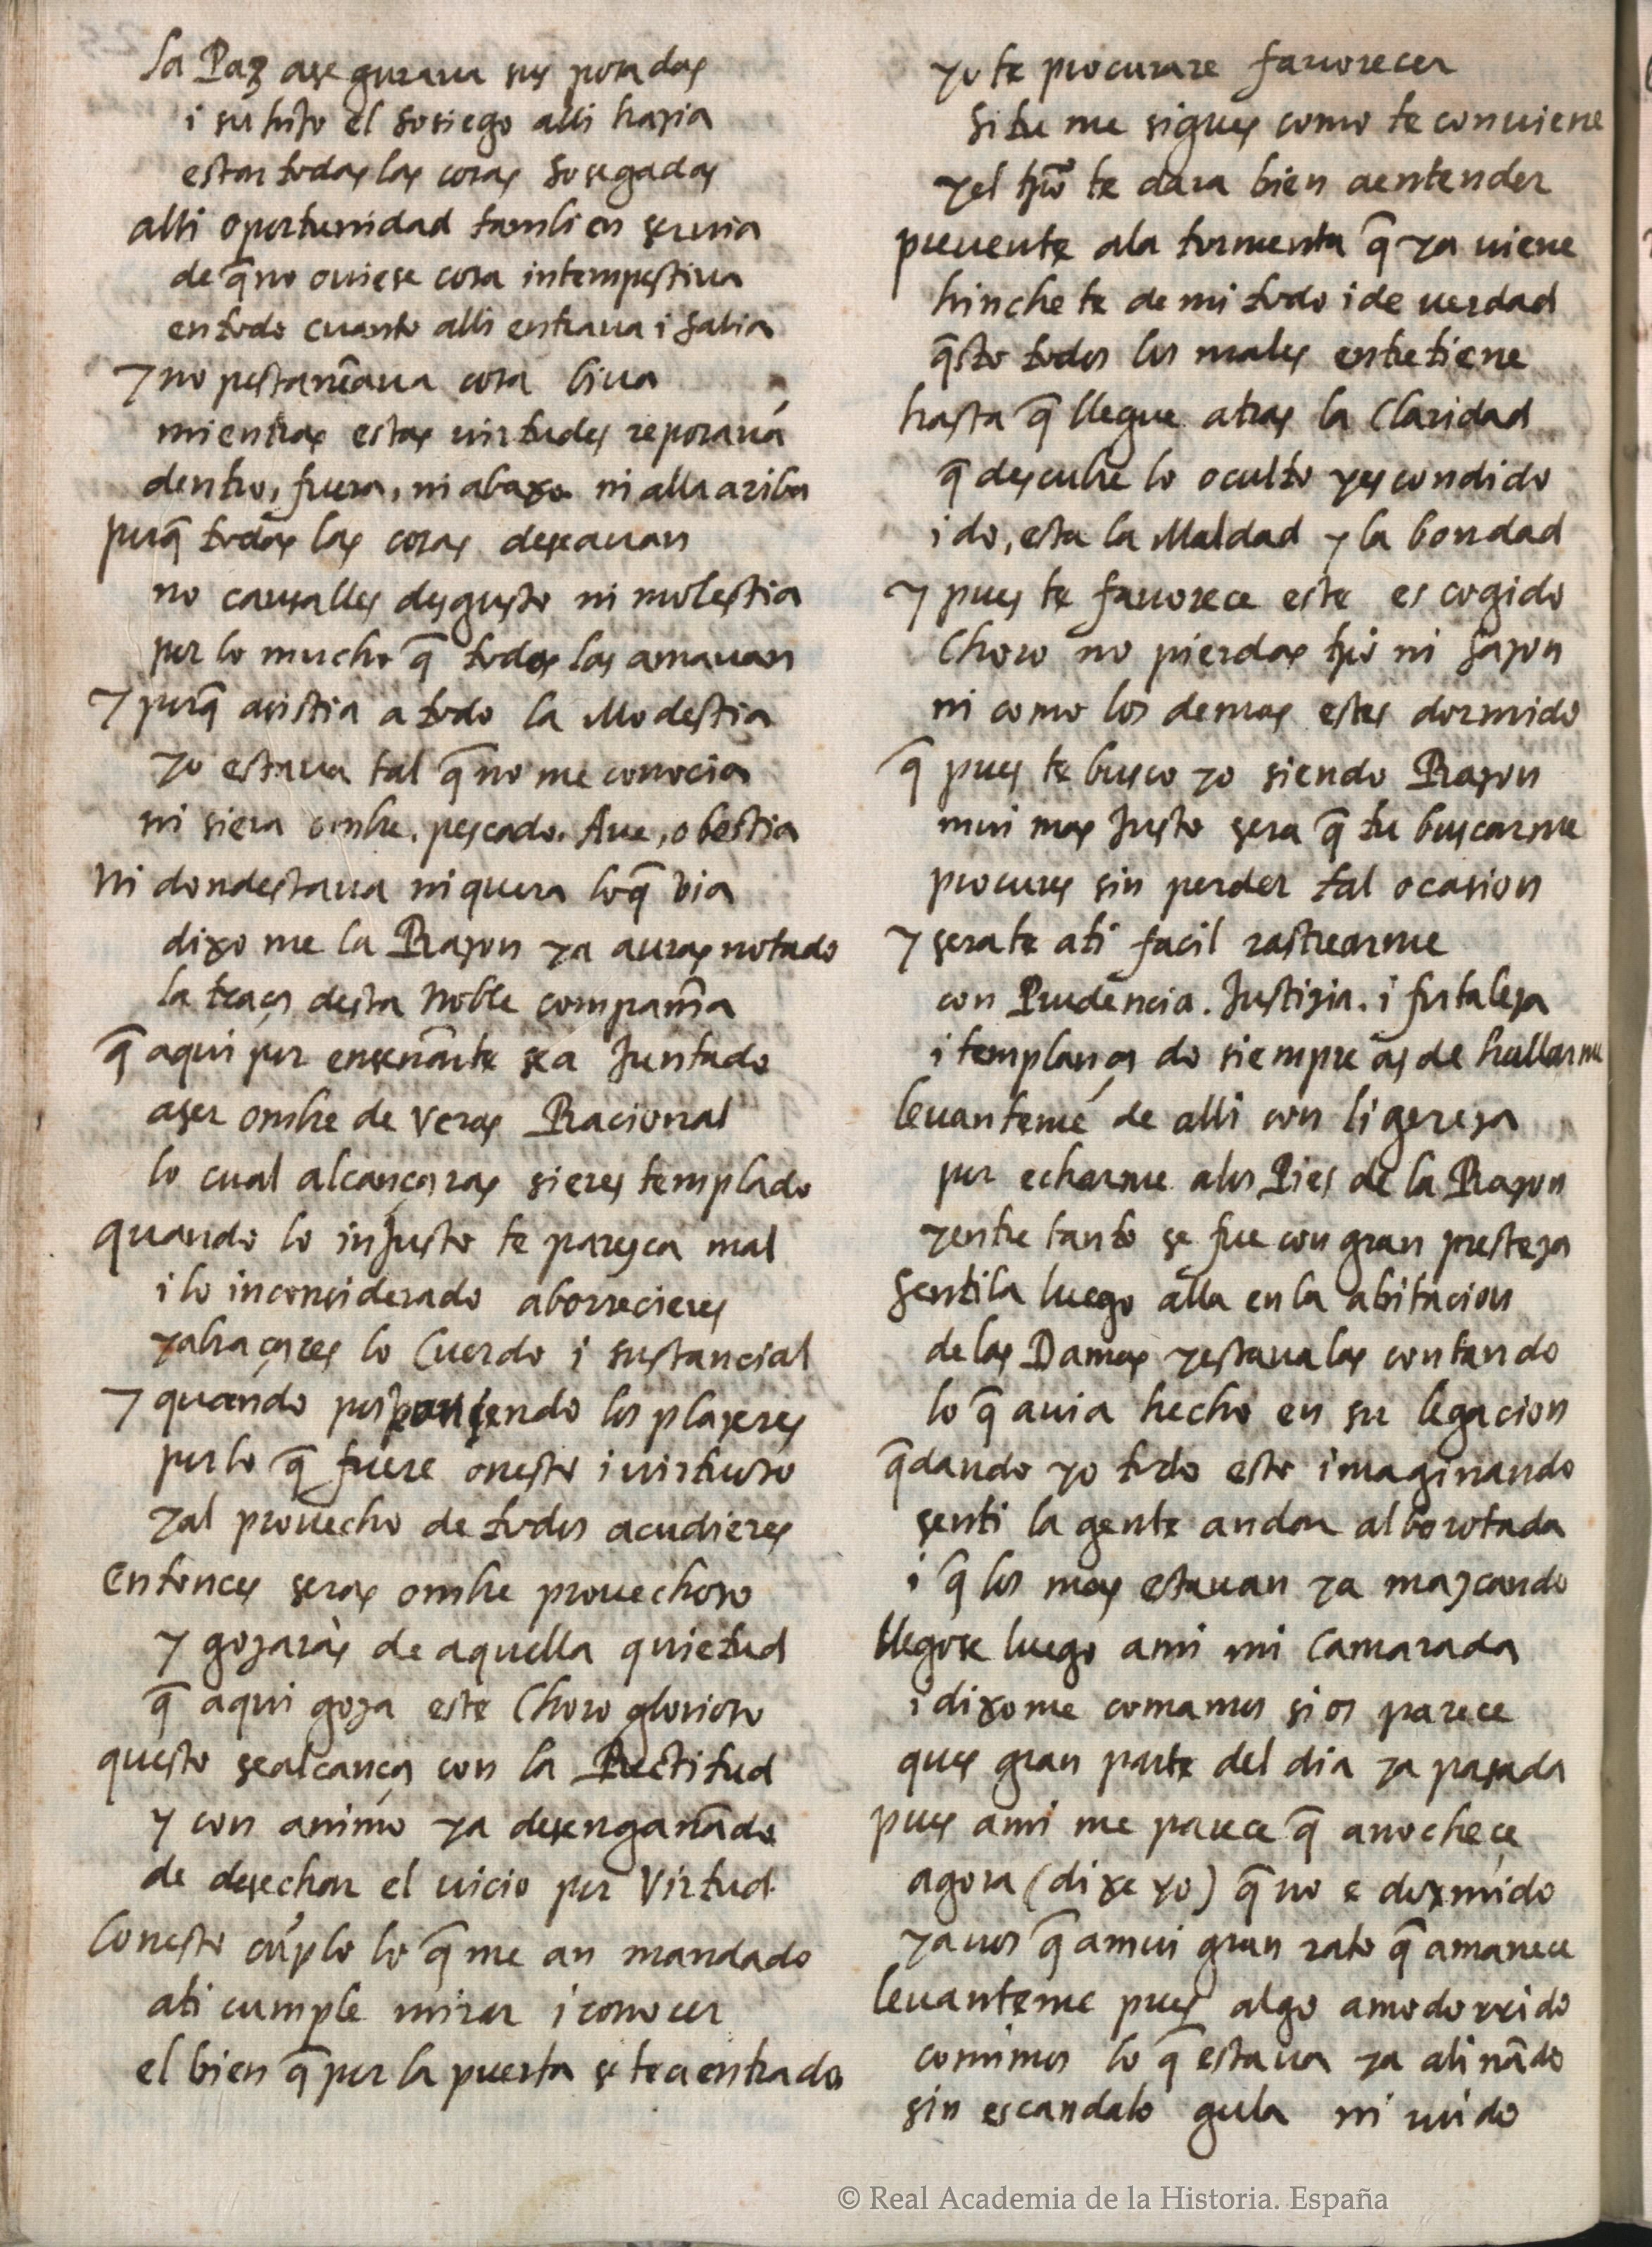 la Paz aseguraua sus posadas
i su hijo el sosiego alli hazia
estar todas las cosas sosegadas
alli oportunidad tambien seruia
de q̃ no ouiese cosa intempestiua
en todo cuanto alli entraua i salia
y no pestañeaua cosa biua
mientras estas virtudes reposauã
dentro, fuera, ni abaxo ni alla ariba
porq̃ todas las cosas deseauan
no causalles desgusto ni molestia
por lo mucho q̃ todos las amauan
y porq̃ asistia a todo la Modestia
yo estaua tal q̃ no me conocia
ni si era ombre, pescado, Aue, o bestia
Ni dondestaua ni quera loq̃ via
dixo me la Razon ya auras notado
la traça desta Noble compañia
q̃ aqui por enseñarte sea Juntado
aser ombre de Veras Racional
lo cual alcançaras si eres templado
quando lo inJusto te paresca mal
i lo inconsiderado aborrecieres
yabraçares lo Cuerdo i sustancial
y quando posponiendo los plazeres
por lo q̃ fuere onesto i uirtuoso
yal prouecho de todos acudieres
Entonces seras ombre prouechoso
y gozaràs de aquella quietud
q̃ aqui goza este Choro glorioso
questo sealcança con la Rectitud
y con animo ya desengañado
de desechar el uicio por Virtud
Conesto cũplo lo q̃ me an mandado
ati cumple mirar i conocer
el bien q̃ por la puerta se tea entrado
yo te procurare fauorecer
si tu me sigues como te conuiene
yel tpõ te dara bien aentender
preuente ala tormenta q̃ ya uiene
hinche te de mi todo i de uerdad
q̃sto todos los males entretiene
hasta q̃ llegue atras la Claridad
q̃ descubre lo oculto yescondido
i do, esta la Maldad y la bondad
y pues te fauorece este escogido
Choro no pierdas tpõ ni sazon
ni como los demas estes dormido
q̃ pues te busco yo siendo Razon
mui mas Justo sera q̃ tu buscarme
procures sin perder tal ocasion
y serate ati facil rastrearme
con Prudencia. Justizia. i fortaleza
i templança do siempre as de hallarme
leuanteme de alli con ligereza
por echarme alos Pies de la Razon
yentre tanto se fue con gran presteza
sentila luego alla en la abitacion
de las Damas yestaualas contando
lo q̃ auia hecho en su legacion
q̃dando yo todo esto imaginando
senti la gente andar alborotada
i q̃ los mas estauan ya mazcando
llegose luego ami mi Camarada
i dixome comamos si os parece
ques gran parte del dia ya pasada
pues ami me parece q̃ anochece
agora (dixe yo) q̃ no e dormido
yauos q̃ amui gran rato q̃ amanece
leuanteme pues algo amodorrido
comimos lo q̃ estaua ya aliñado
sin escandalo gula ni ruido
© Real Academia de la Historia. España